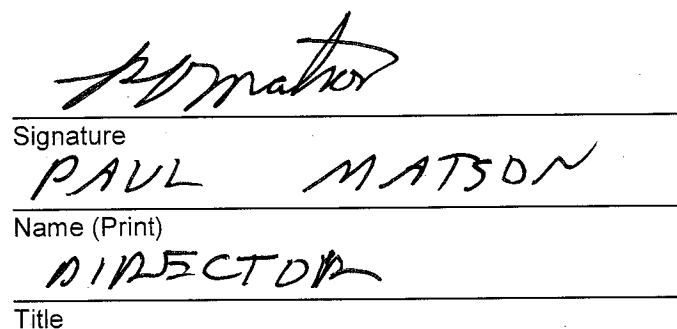 Signature
PAUL MATSON
Name (Print)
DIRECTOR
Title